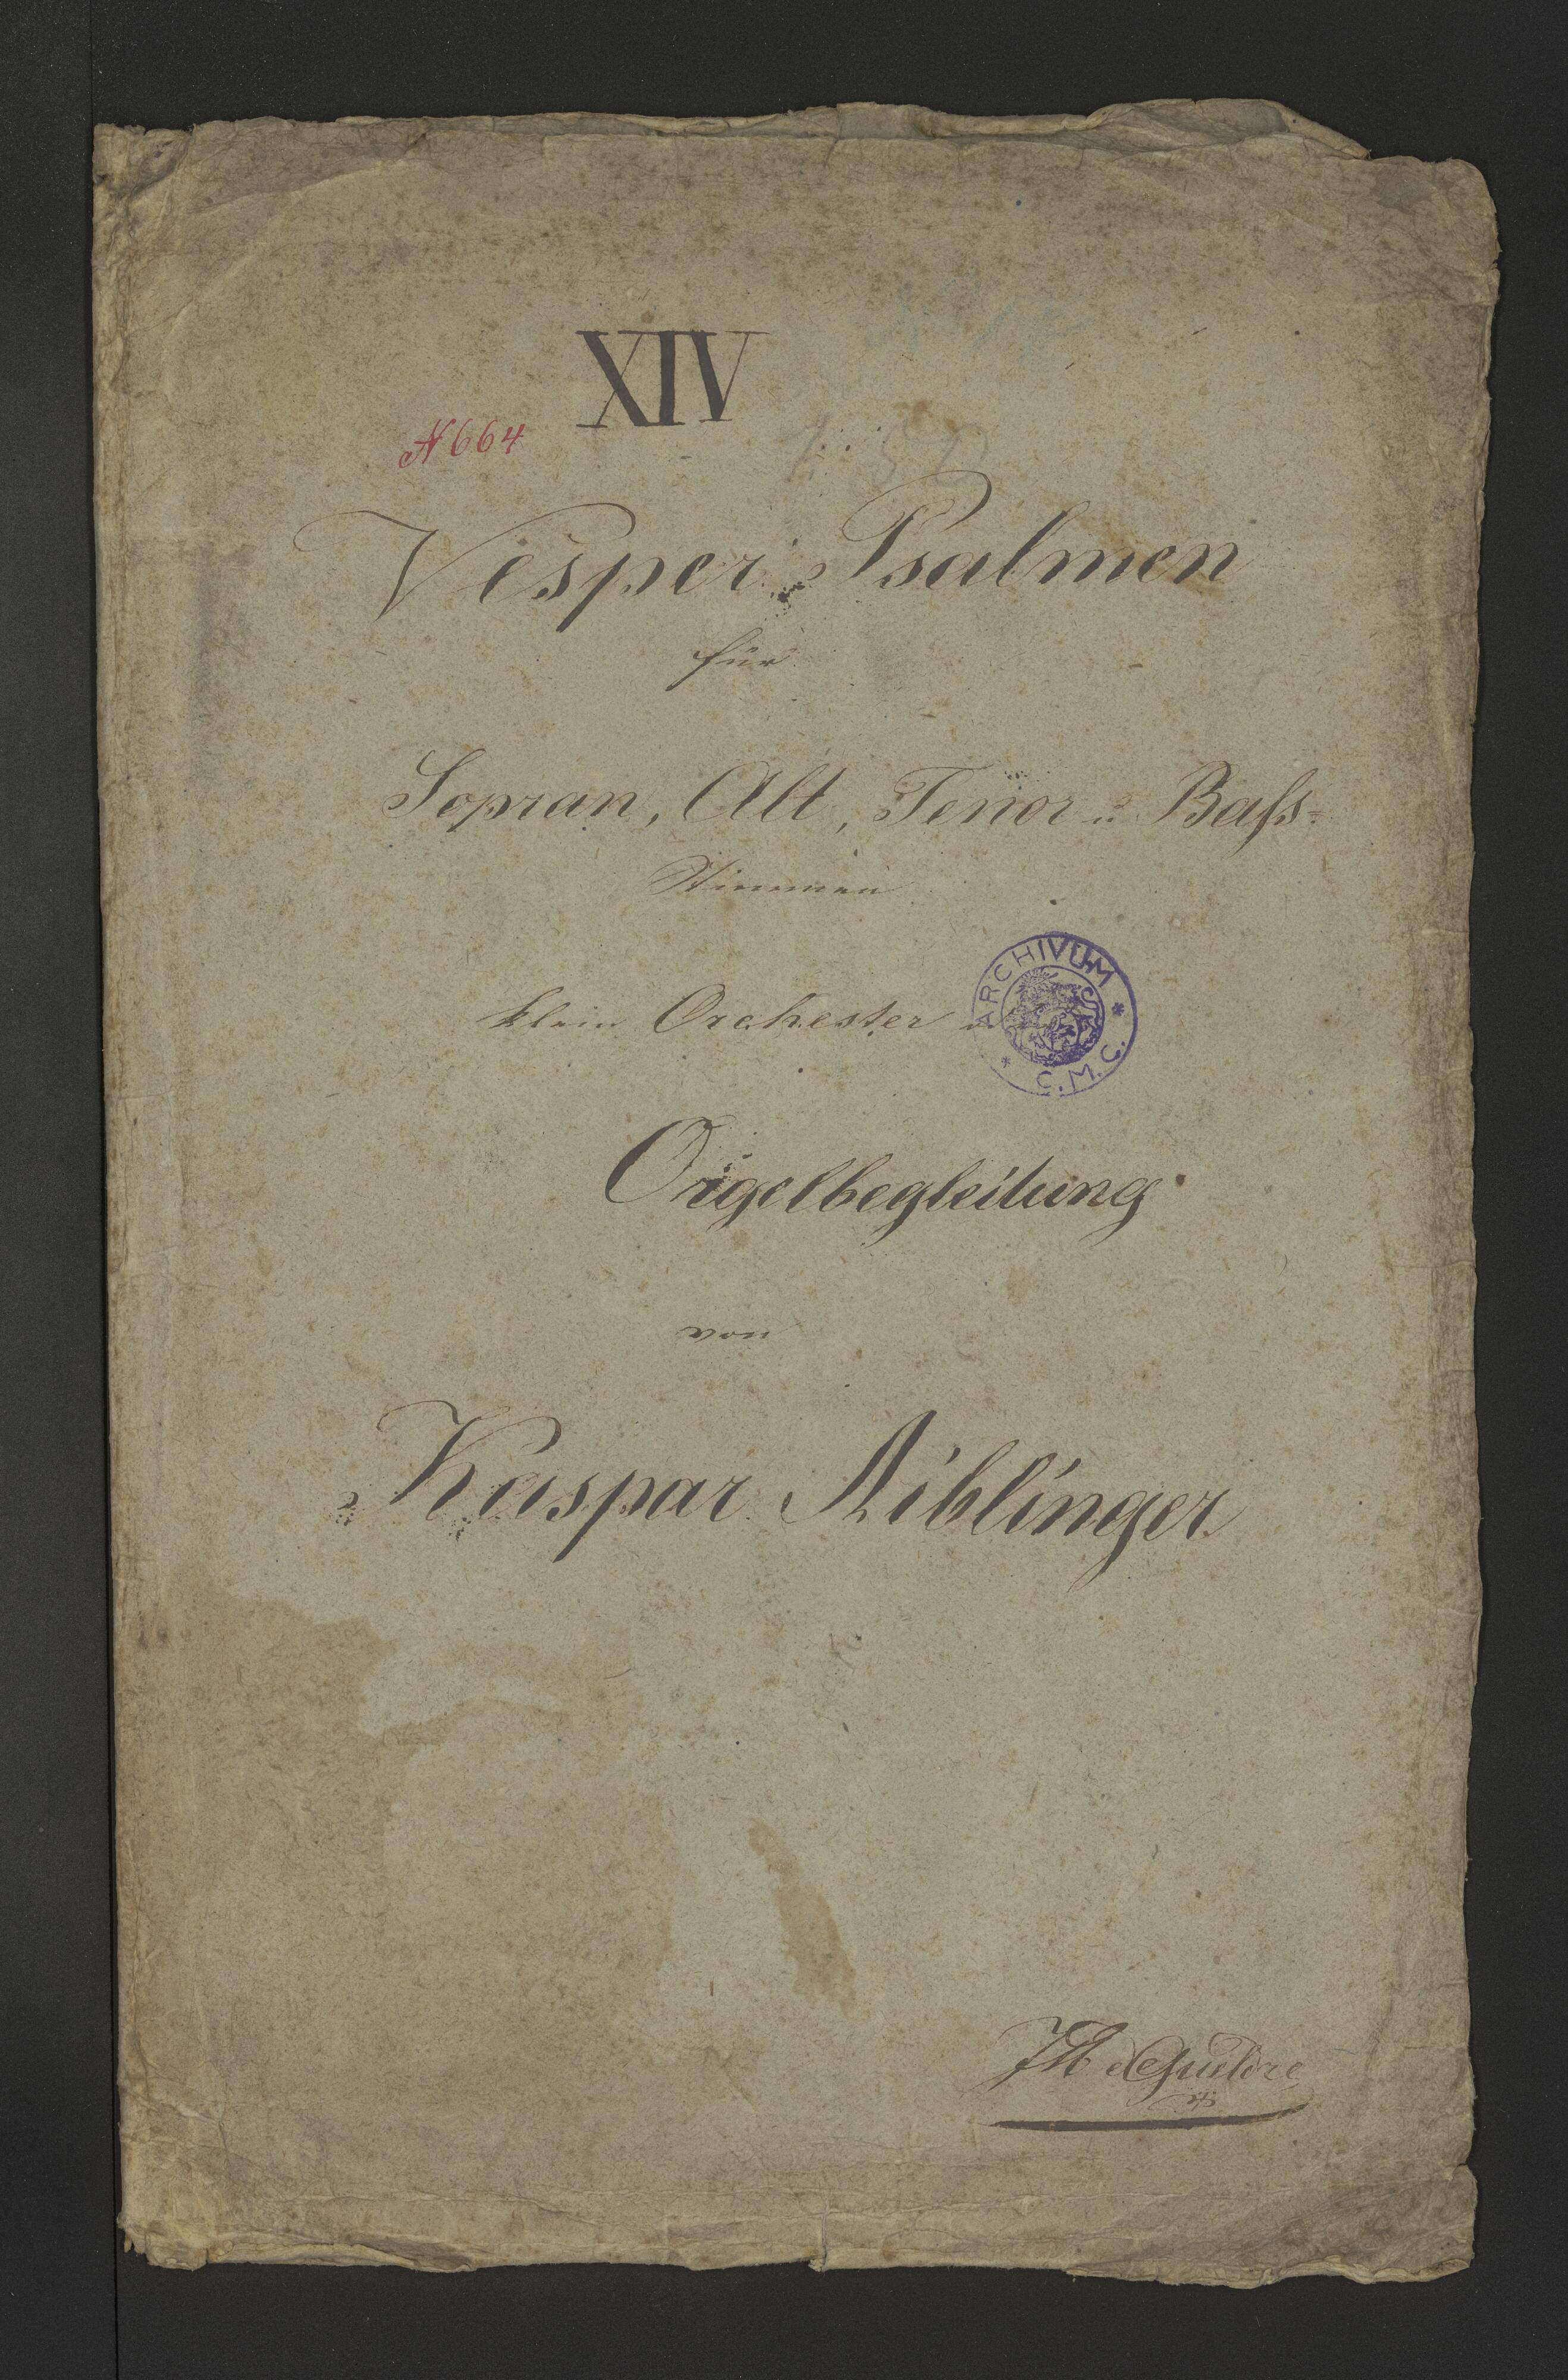 XIV
N 664
Vesper-Psalmen
für
Sopran, Alt, Tenor u. Baſs-
Stimmen
klein Orchester u
ARCHIVUM * C.M.C. *
Orgelbegleitung
von
Kaspar Aiblinger